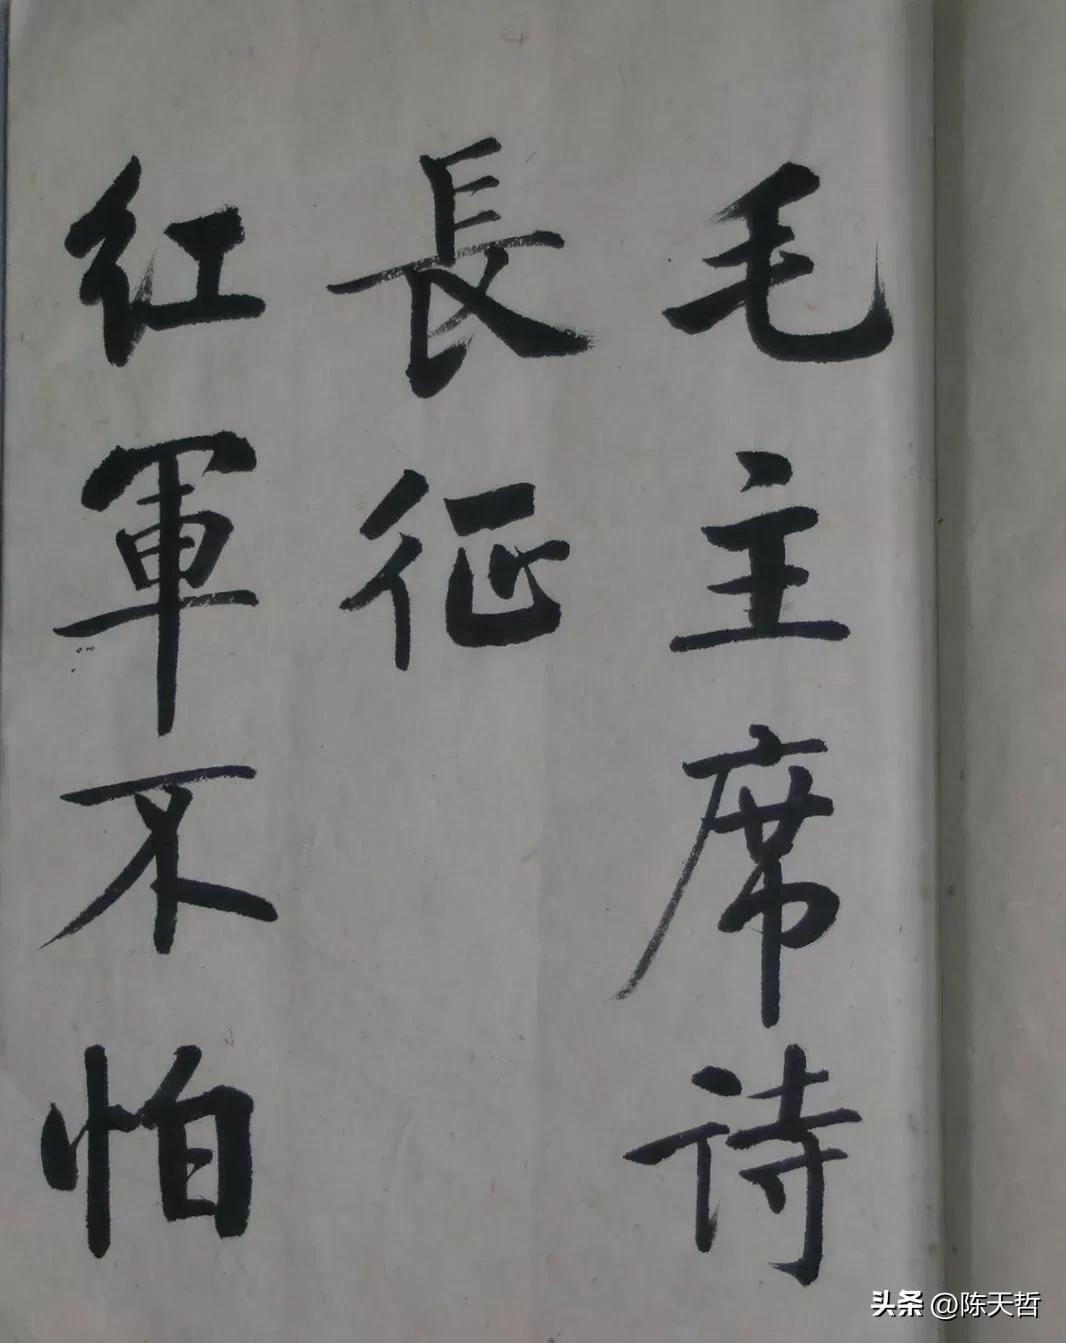 毛主席诗
長征
红軍不怕
头条 @陈天哲